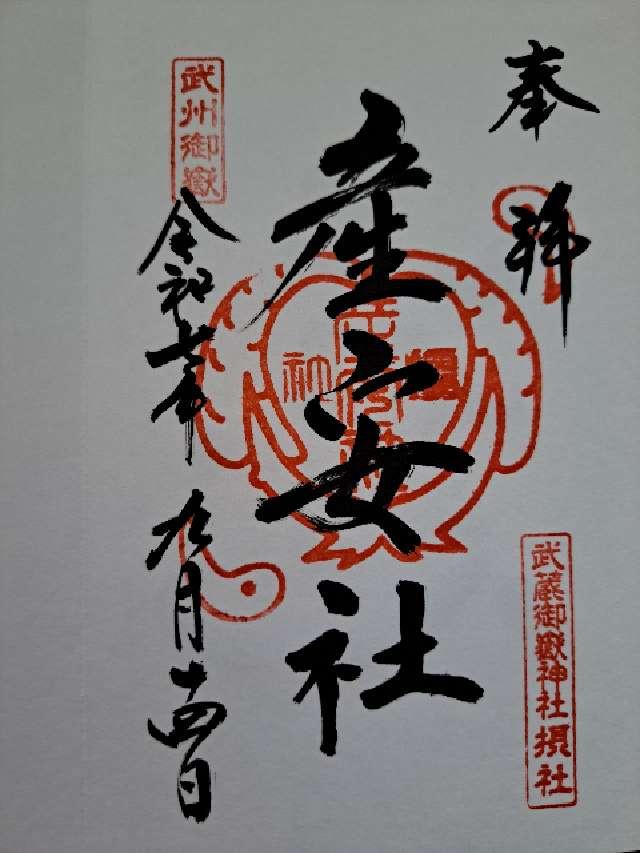 奉拝
武蔵御嶽神社摂社
産安社
武州御嶽
令和七年九月十四日